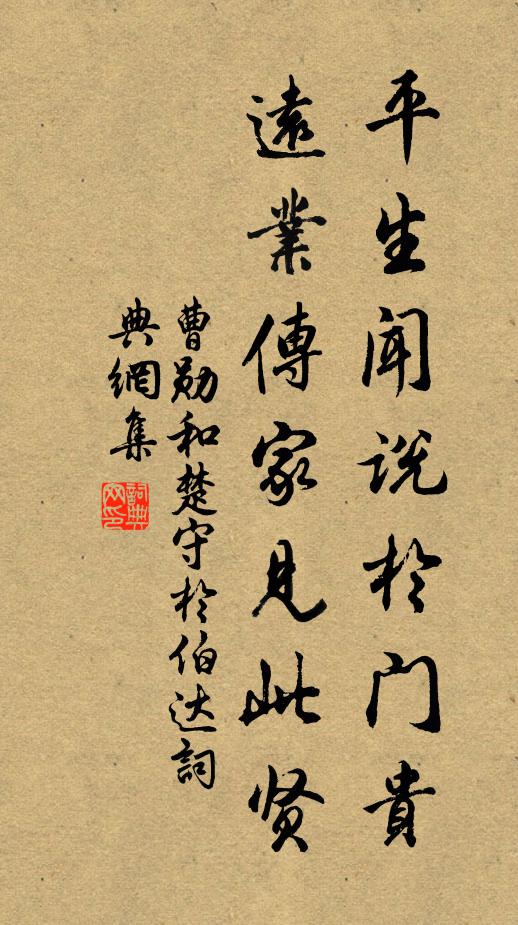 平生闻说於门貴
遠業傳家見此贤
曹勛和楚守於伯达詞
典網集
詞典网印